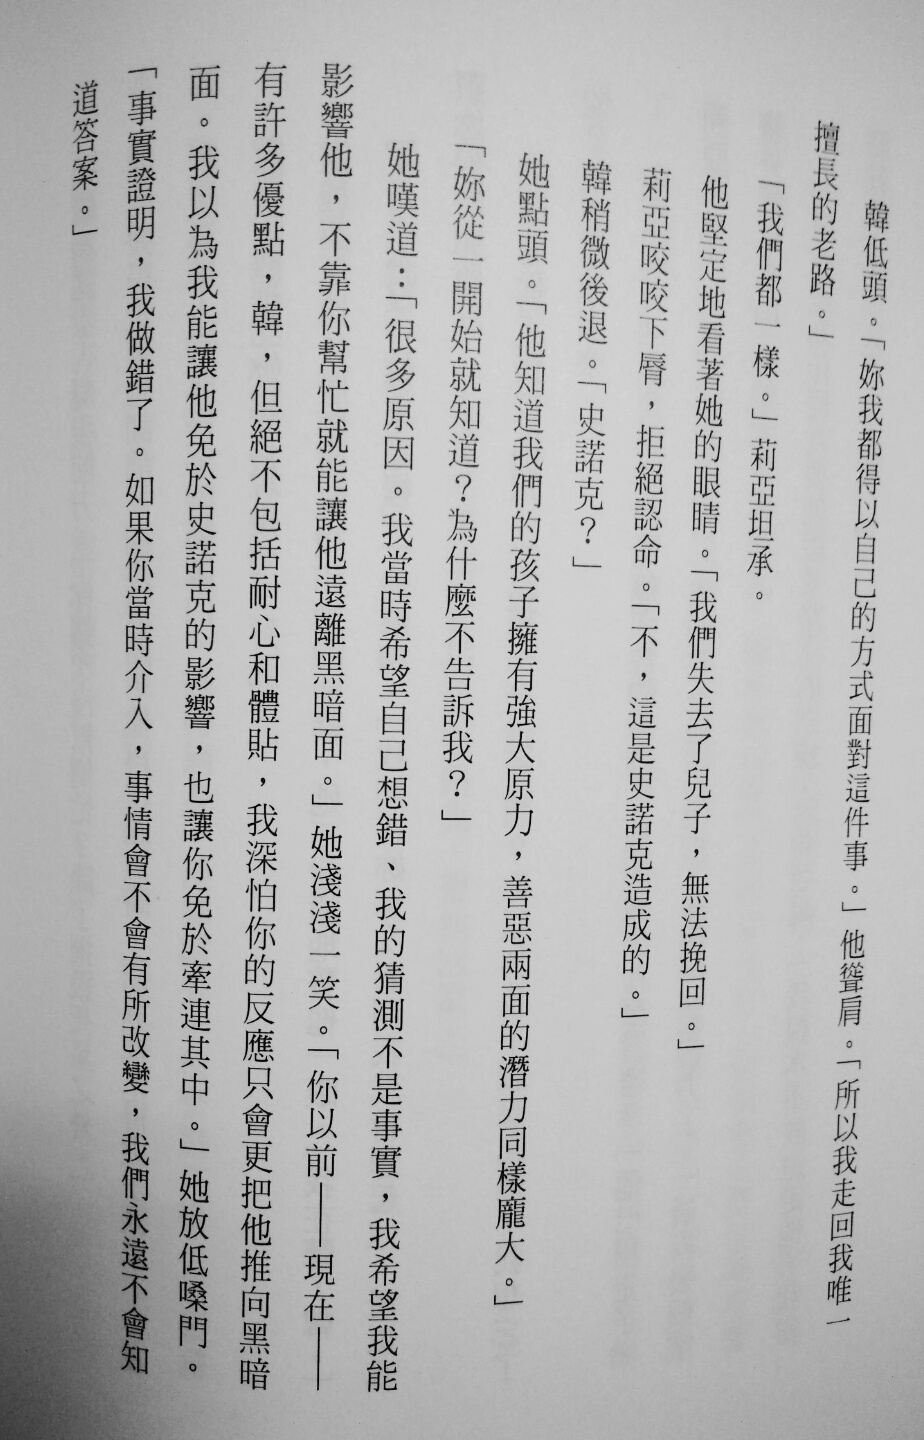 韓低頭。「妳我都得以自己的方式面對這件事。」他聳肩。「所以我走回我唯一
擅長的老路。」
「我們都一樣。」莉亞坦承。
他堅定地看著她的眼睛。「我們失去了兒子，無法挽回。」
莉亞咬咬下脣，拒絕認命。「不，這是史諾克造成的。」
韓稍微後退。「史諾克？」
她點頭。「他知道我們的孩子擁有強大原力，善惡兩面的潛力同樣龐大。」
「妳從一開始就知道？為什麼不告訴我？」
她嘆道：「很多原因。我當時希望自己想錯、我的猜測不是事實，我希望我能
影響他，不靠你幫忙就能讓他遠離黑暗面。」她淺淺一笑。「你以前——現在——
有許多優點，韓，但絕不包括耐心和體貼，我深怕你的反應只會更把他推向黑暗
面。我以為我能讓他免於史諾克的影響，也讓你免於牽連其中。」她放低嗓門。
「事實證明，我做錯了。如果你當時介入，事情會不會有所改變，我們永遠不會知
道答案。」